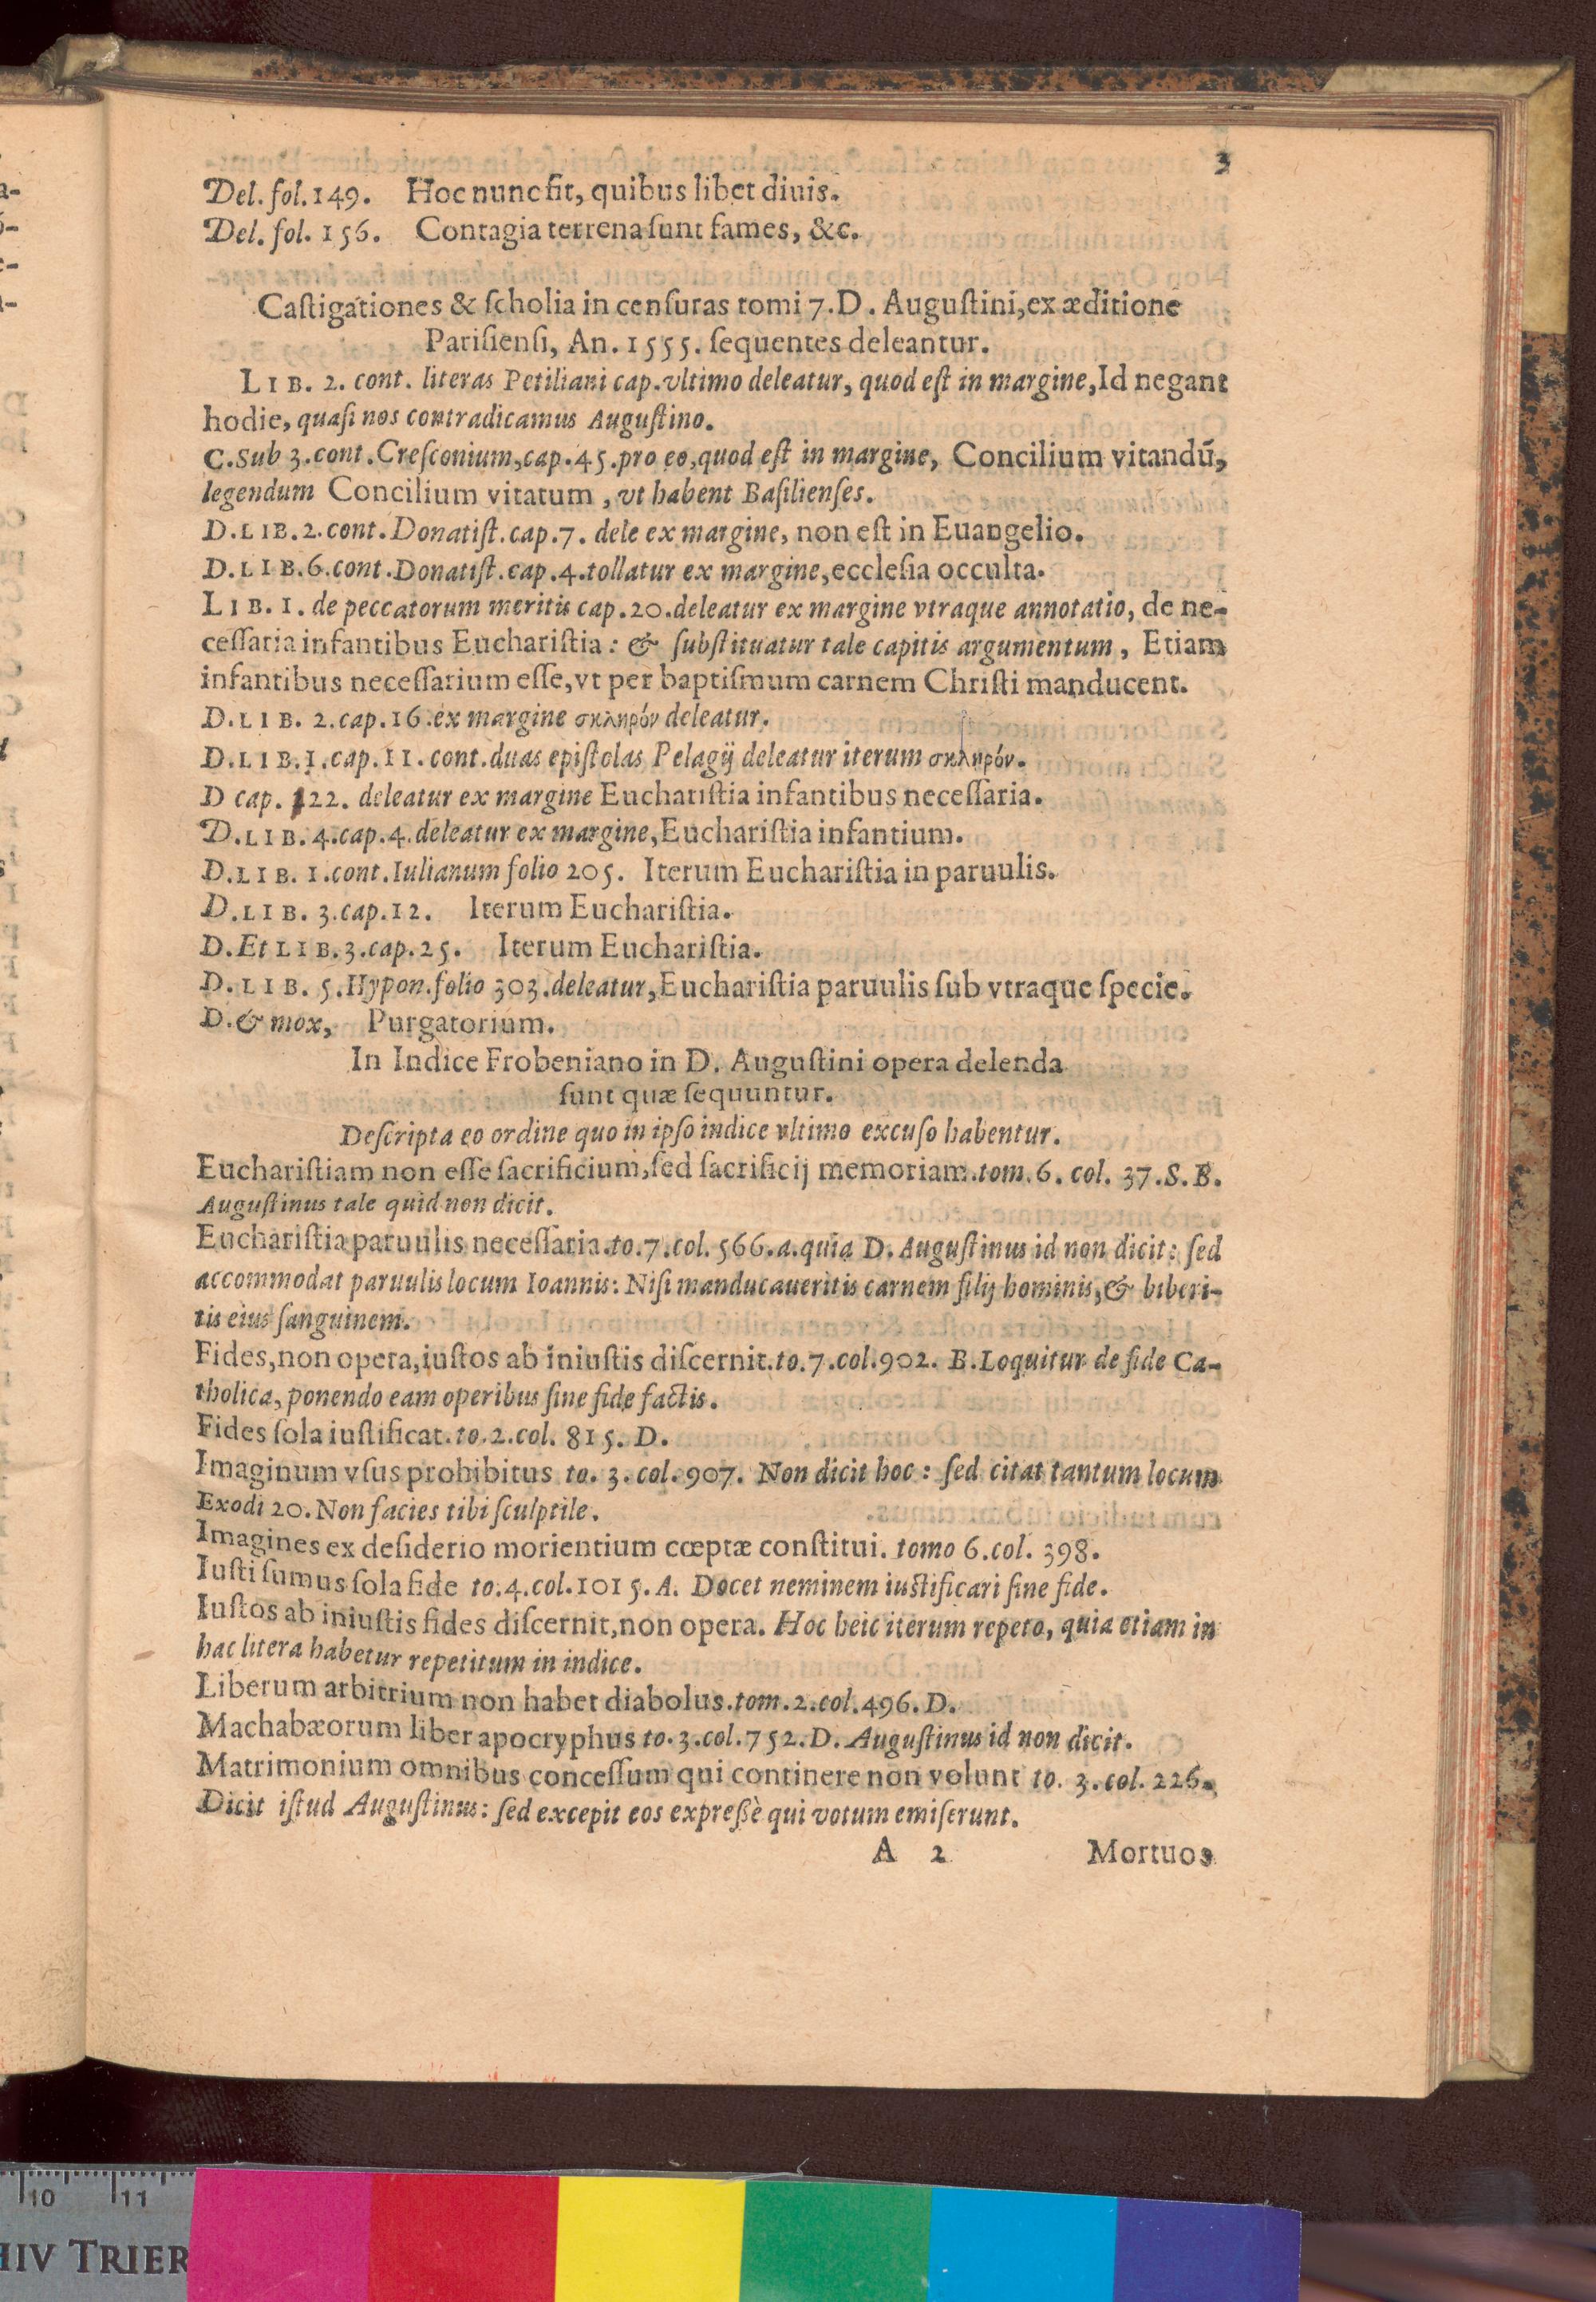 3
Del. fol. 149. Hoc nunc fit, quibus libet diuis.
Del. fol. 156. Contagia terrena sunt fames, &c.
Castigationes & scholia in censuras tomi 7. D. Augustini, ex æditione
Parisiensi, An. 1555. sequentes deleantur.
LIB. 2. cont. literas Petiliani cap. vltimo deleatur, quod est in margine, Id negant
hodie, quasi nos contradicamus Augustino.
C. Sub 3. cont. Cresconium, cap. 45. pro eo, quod est in margine, Concilium vitandū,
legendum Concilium vitatum, vt habent Basilienses.
D. LIB. 2. cont. Donatist. cap. 7. dele ex margine, non est in Euangelio.
D. LIB. 6. cont. Donatist. cap. 4. tollatur ex margine, ecclesia occulta.
LIB. I. de peccatorum meritis cap. 20. deleatur ex margine vtraque annotatio, de ne-
cessaria infantibus Eucharistia: & substituatur tale capitis argumentum, Etiam
infantibus necessarium esse, vt per baptismum carnem Christi manducent.
D. LIB. 2. cap. 16. ex margine σκληρόν deleatur.
D. LIB. I. cap. II. cont. duas epistolas Pelagij deleatur iterum σκληρόν.
D cap. 122. deleatur ex margine Eucharistia infantibus necessaria.
D. LIB. 4. cap. 4. deleatur ex margine, Eucharistia infantium.
D. LIB. I. cont. Iulianum folio 205. Iterum Eucharistia in paruulis.
D. LIB. 3. cap. 12. Iterum Eucharistia.
D. Et LIB. 3. cap. 25. Iterum Eucharistia.
D. LIB. 5. Hypon. folio 303. deleatur, Eucharistia paruulis sub vtraque specie.
D. & mox, Purgatorium.
In Indice Frobeniano in D. Augustini opera delenda
sunt quæ sequuntur.
Descripta eo ordine quo in ipso indice vltimo excuso habentur.
Eucharistiam non esse sacrificium, sed sacrificij memoriam. tom. 6. col. 37. S. B.
Augustinus tale quid non dicit.
Eucharistia paruulis necessaria. to. 7. col. 566. a. quia D. Augustinus id non dicit: sed
accommodat paruulis locum Ioannis: Nisi manducaueritis carnem filij hominis, & biberi-
tis eius sanguinem.
Fides, non opera, iustos ab iniustis discernit. to. 7. col. 902. B. Loquitur de fide Ca-
tholica, ponendo eam operibus sine fide factis.
Fides sola iustificat. to. 2. col. 815. D.
Imaginum vsus prohibitus to. 3. col. 907. Non dicit hoc: sed citat tantum locum
Exodi 20. Non facies tibi sculptile.
Imagines ex desiderio morientium cœptæ constitui. tomo 6. col. 398.
Iusti sumus sola fide to. 4. col. 1015. A. Docet neminem iustificari sine fide.
Iustos ab iniustis fides discernit, non opera. Hoc heic iterum repeto, quia etiam in
hac litera habetur repetitum in indice.
Liberum arbitrium non habet diabolus. tom. 2. col. 496. D.
Machabæorum liber apocryphus to. 3. col. 752. D. Augustinus id non dicit.
Matrimonium omnibus concessum qui continere non volunt to. 3. col. 226.
Dicit istud Augustinus: sed excepit eos expreßè qui votum emiserunt.
A 2 Mortuos
10 11
HIV TRIER